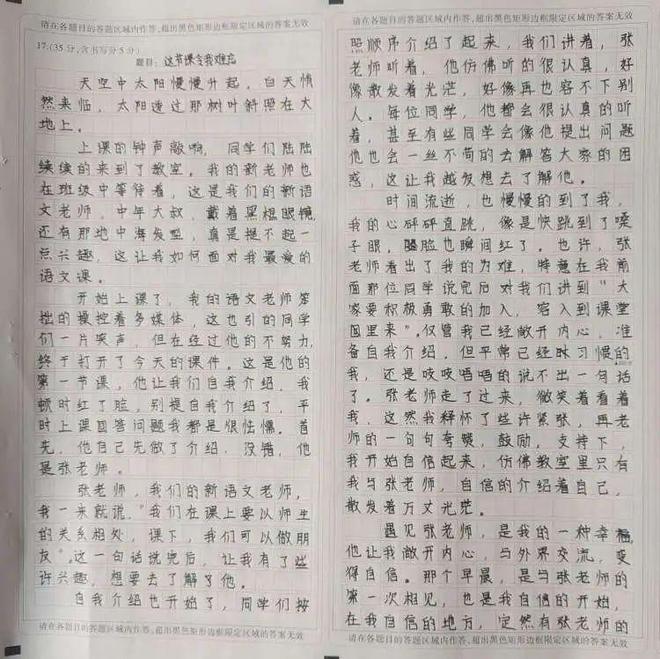 请在各题目的答题区域内作答,超出黑色矩形边框限定区域的答案无效
17.(35分,含书写分5分)
题目：这节课令我难忘
天空中太阳慢慢升起，白天悄
然来临，太阳透过那树叶斜照在大
地上。
上课的钟声敲响，同学们陆陆
续续的来到了教室。我的新老师也
在班级中等待着，这是我们的新语
文老师，中年大叔，戴着黑框眼镜，
还有那地中海发型，真是提不起一
点兴趣，这让我如何面对我最爱的
语文课。
开始上课了，我的语文老师笨
拙的操控着多媒体，这也引的同学
们一片笑声，但在经过他的不努力，
终于打开了今天的课件。这是他的
第一节课，他让我们自我介绍，我
顿时红了脸，别提自我介绍了，平
时上课回答问题我都是很怯懦。首
先，他自己先做了介绍，没错，他
是张老师。
张老师，我们的新语文老师，
我一来就说，“我们在课上要以师生
的关系相处，课下，我们可以做朋
友”。这一句话说完后，让我有了些
许兴趣，想要去了解了他。
自我介绍也开始了，同学们按
请在各题目的答题区域内作答,超出黑色矩形边框限定区域的答案无效
请在各题目的答题区域内作答,超出黑色矩形边框限定区域的答案无效
照顺序介绍了起来，我们讲着，张
老师听着，他仿佛听的很认真，好
像散发着光茫，好像再也容不下别
人。每位同学，他都会很认真的听
着，甚至有些同学会像他提出问题
他也会一丝不苟的去解答大家的困
惑，这让我越发想去了解他。
时间流逝，也慢慢的到了我，
我的心砰砰直跳，像是快跳到了嗓
子眼，脸也瞬间红了。也许，张
老师看出了我的为难，特意在我前
面那位同学说完后对我们讲到“大
家要积极勇敢的加入，容入到课堂
里来”。仅管我已经敞开内心，准
备自我介绍，但平常已经时习惯的
我，还是吱吱唔唔的说不出一句话
了。张老师走了过来，微笑着看着
我，这然我释怀了些许紧张，再老
师的一句句夸奖，鼓励，支持下，
我开始自信起来，仿佛教室里只有
我与张老师，自信的介绍着自己，
散发着万丈光茫。
遇见张老师，是我的一种幸福，
他让我敞开内心，与外界交流，变
得自信。那个早晨，是与张老师的
第一次相见，也是我自信的开始，
在我自信的地方，定然有张老师的
请在各题目的答题区域内作答,超出黑色矩形边框限定区域的答案无效